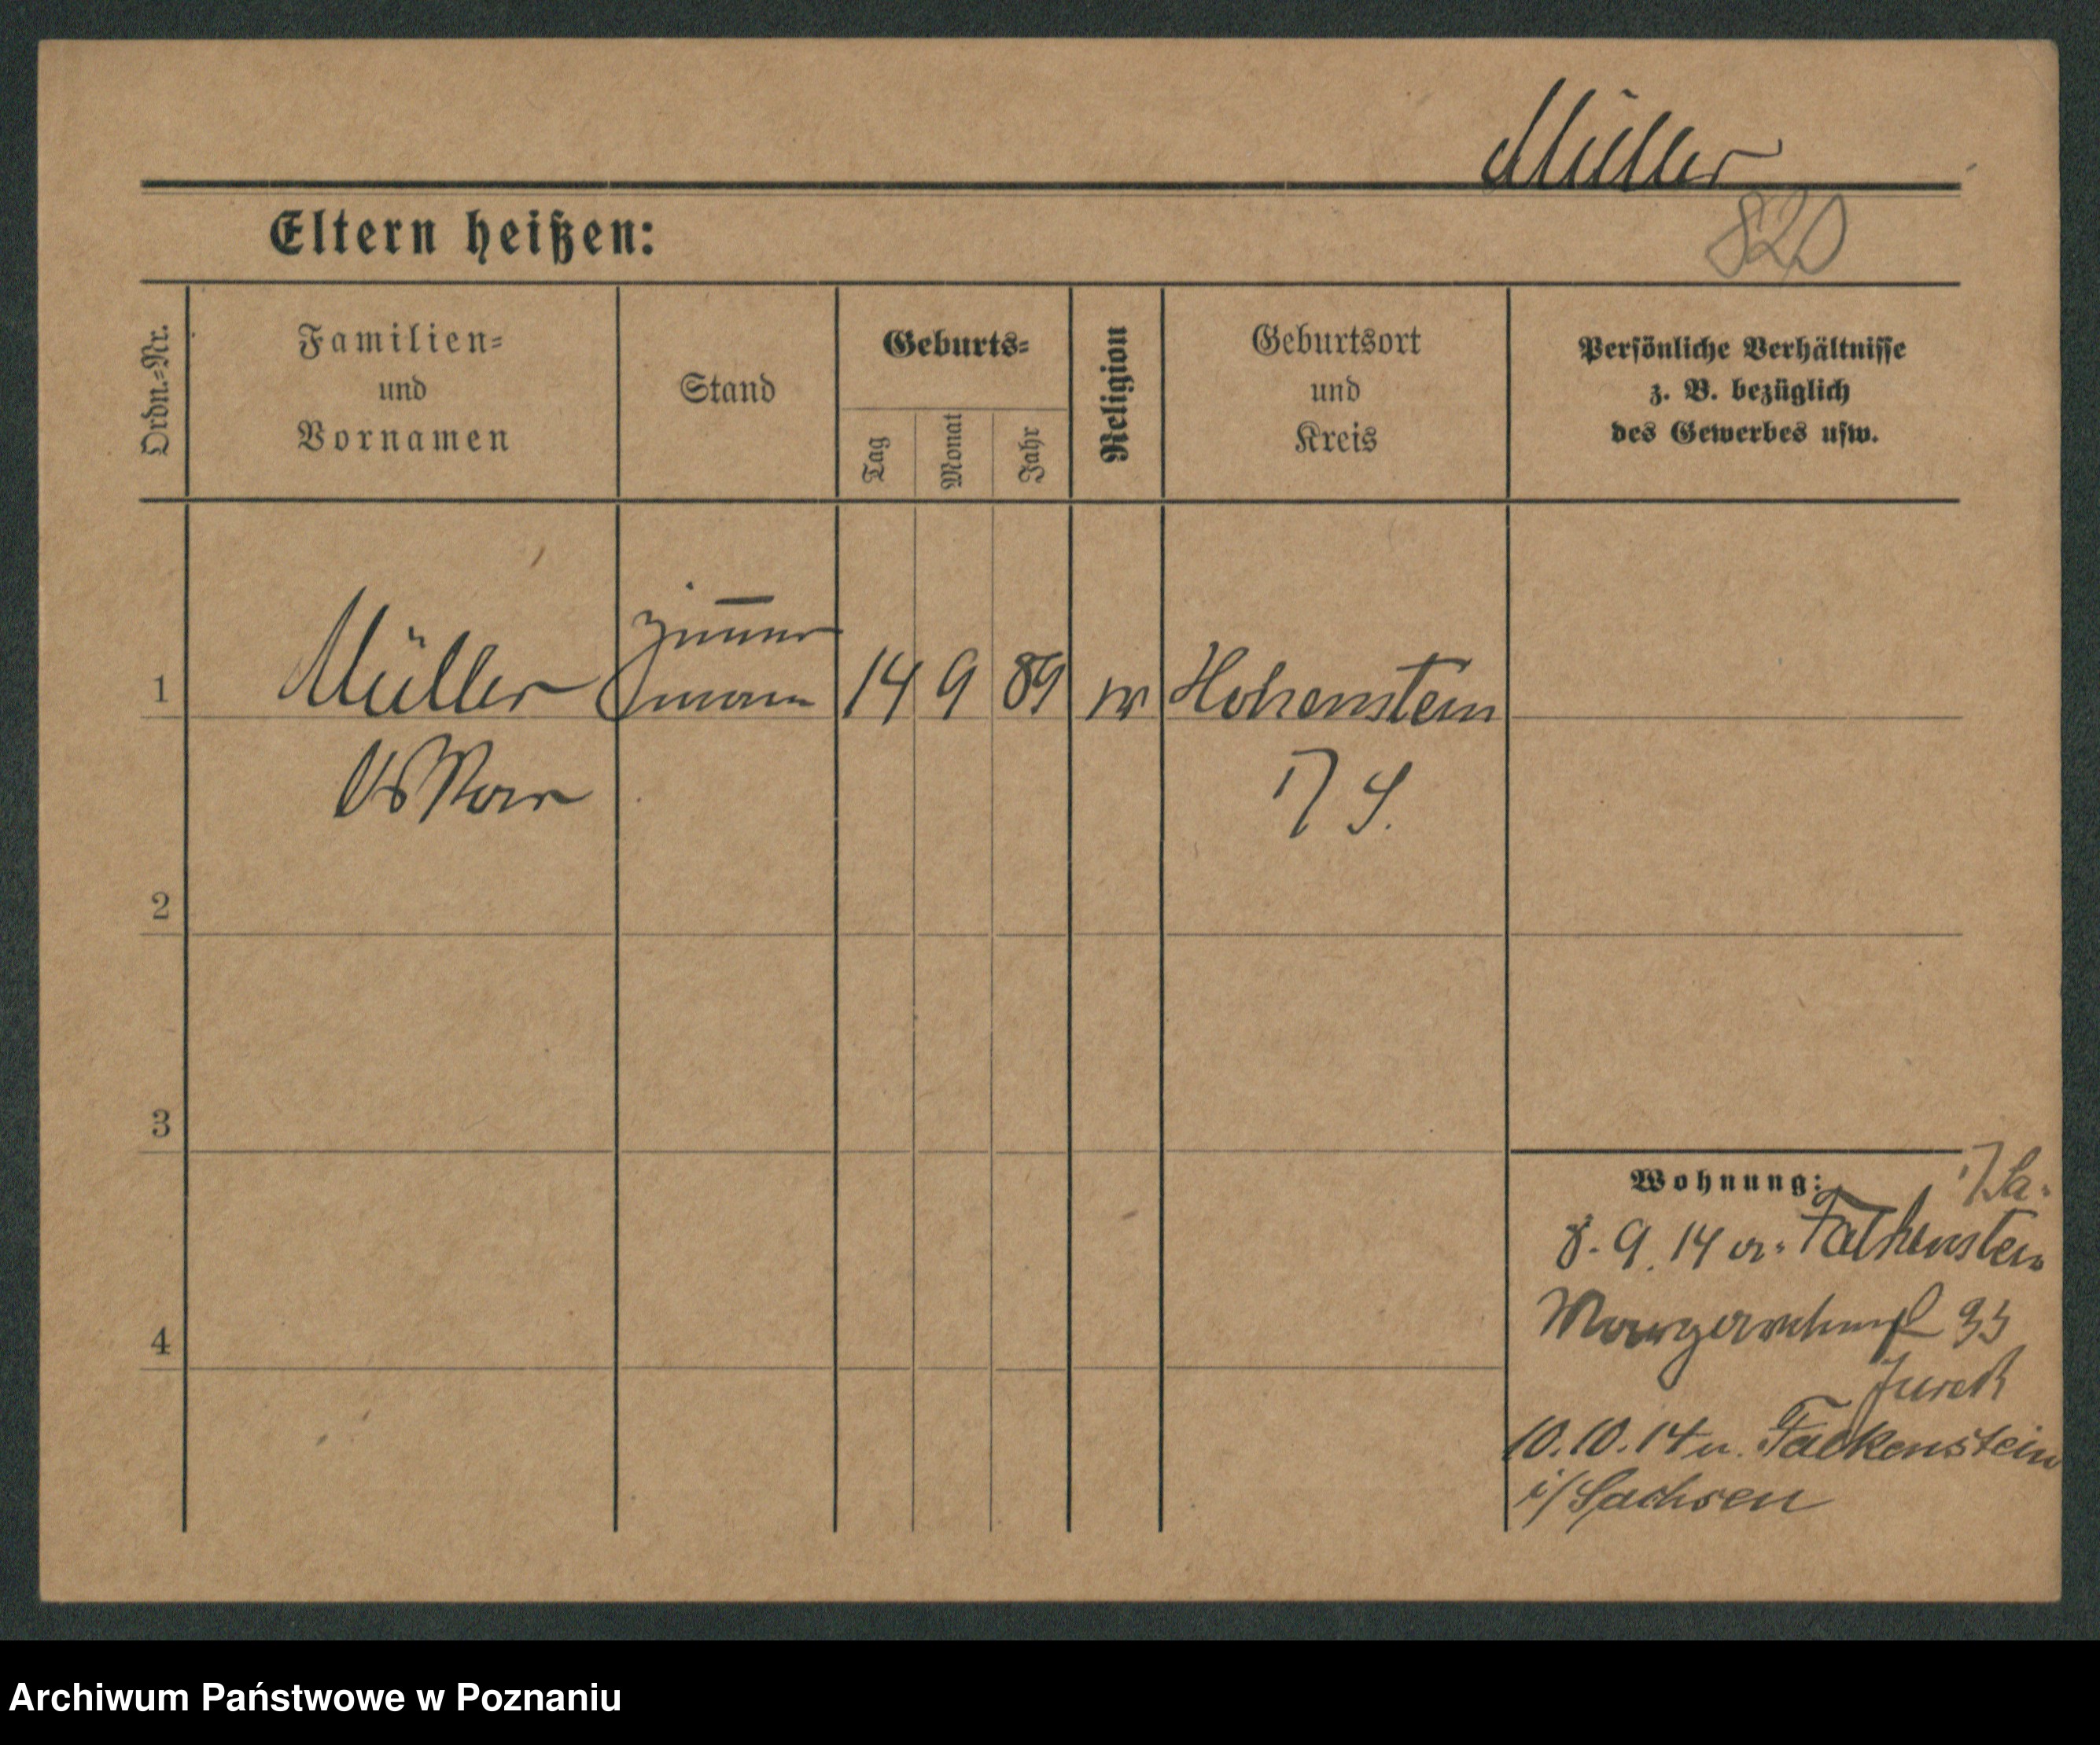 Müller
820
Eltern heißen:
Ordn.-Nr.
Familien-
und
Vornamen
Stand
Geburts-
Tag
Monat
Jahr
Religion
Geburtsort
und
Kreis
Persönliche Verhältnisse
z. B. bezüglich
des Gewerbes usw.
1
Müller
Zimmer
mann
14
9
89
Hohenstein
Oskar
i/ S.
2
3
4
Wohnung:
i/ Sa.
8. 9. 14 a. Falkenstein
33
10.10.14 n. Falkenstein
i/ Sachsen
Archiwum Państwowe w Poznaniu